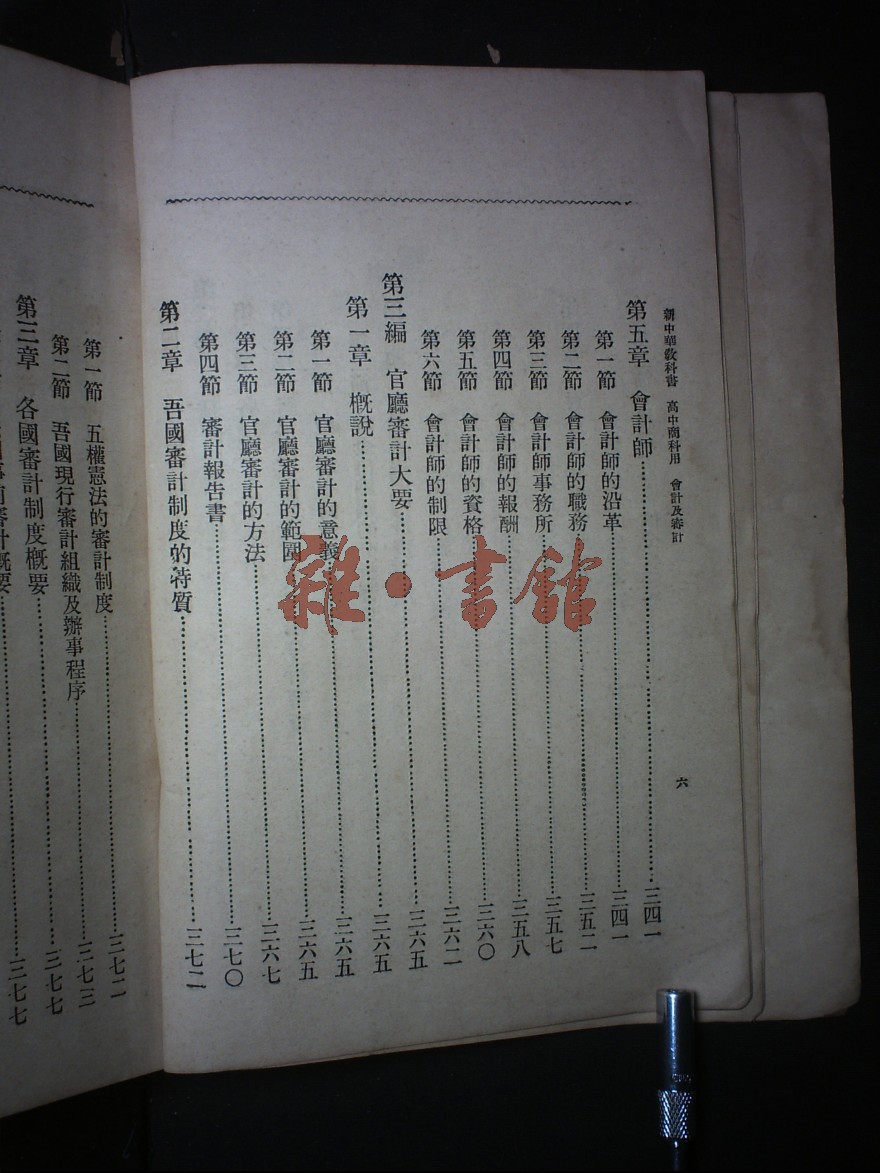 新中華教科書　高中商科用　會計及審計
六
第五章　會計師……三四一
第一節　會計師的沿革……三四一
第二節　會計師的職務……三五二
第三節　會計師事務所……三五七
第四節　會計師的報酬……三五八
第五節　會計師的資格……三六〇
第六節　會計師的制限……三六二
第三編　官廳審計大要……三六五
第一章　槪說……三六五
第一節　官廳審計的意義……三六五
第二節　官廳審計的範圍……三六五
第三節　官廳審計的方法……三六七
第四節　審計報告書……三七〇
第二章　吾國審計制度的特質……三七二
第一節　五權憲法的審計制度……三七二
第二節　吾國現行審計組織及辦事程序……三七三
第三章　各國審計制度槪要……三七七
審計槪要……三七七
雜·書館